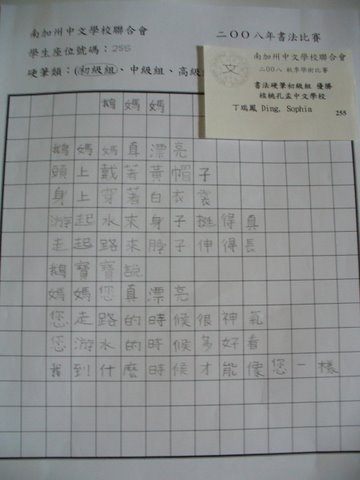 南加州中文學校聯合會
二OO八年書法比賽
學生座位號碼:255
硬筆類組:(初級組、中級組、高級
南加州中文學校聯合會
二OO八 秋季學術比賽
書法硬筆初級組 優勝
核桃孔孟中文學校
丁瑞鳳 Ding, Sophia
255
鵝媽媽
鵝媽媽真漂亮
頭上戴著黃帽子
身上穿著白衣裳
游起水來身子挺得真
走起路來脖子伸得長
鵝寶寶說
媽媽您真漂亮
您走路的時候很神氣
您游水的時候多好看
我到什麼時候才能像您一樣